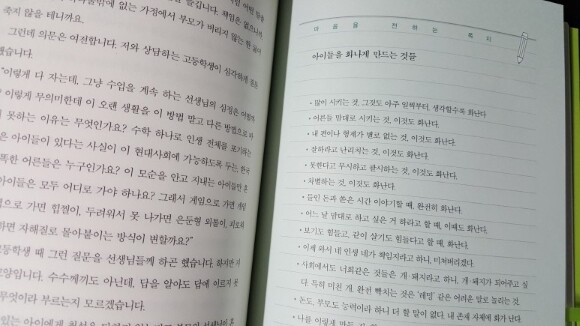 죽지 않을 테니까요.
그런데 의문은 여전합니다. 저와 상담하는 고등학생이 심각하게
"이렇게 다 자는데, 그냥 수업을 계속 하는 선생님의 심정은
이렇게 무의미한데 이 오랜 생활을 이 방법 말고 다른 방법으로
못 하는 이유는 무엇인가요? 수학 하나로 인생 전체를 포기하는
아이들이 있다는 사실이 이 현대사회에 가능하도록 두는, 한국
똑한 어른들은 누구인가요? 이 모순을 안고 지내는 아이들만
아이들은 모두 어디로 가야 하나요? 그래서 게임으로 가면
으로 가면 힘껏이, 두려워서 못 나가면 은둔형 외톨이,
하면 자해질로 몰아붙이는 방식이 변할까요?"
고등학생 때 그런 질문을 선생님들께 하곤 했습니다. 하지만
모양입니다. 수수께끼도 아닌데, 답을 알아도 답에 이르지
무엇이라 부르는지 모르겠습니다.
마음을 전하는 쪽지
아이들을 화나게 만드는 것들
• 많이 시키는 것, 그것도 아주 일찍부터. 생각할수록 화난다.
• 어른들 맘대로 시키는 것, 이것도 화난다.
• 내 편이나 형제가 별로 없는 것, 이것도 화난다.
• 잘하라고 난리치는 것, 이것도 화난다.
• 못한다고 무시하고 괄시하는 것, 이것도 화난다.
• 차별하는 것, 이것도 화난다.
• 들인 돈과 쏟은 시간 이야기할 때, 완전히 화난다.
• 어느 날 맘대로 하고 싶은 거 하라고 할 때, 이때도 화난다.
• 보기도 힘들고, 같이 살기도 힘들다고 할 때, 화난다.
• 이제 와서 네 인생 네가 책임지라고 하니, 미쳐버리겠다.
• 사회에서도 너희같은 것들은 개·돼지라고 하니, 개·돼지가 되어주고 싶
다. 특히 이점 개, 완전 빡치는 것은 '레밍' 같은 어려운 말로 놀리는 것.
• 돈도, 부모도 능력이라 하니 더 할 말이 없다. 내 존재 자체에 화가 난다.